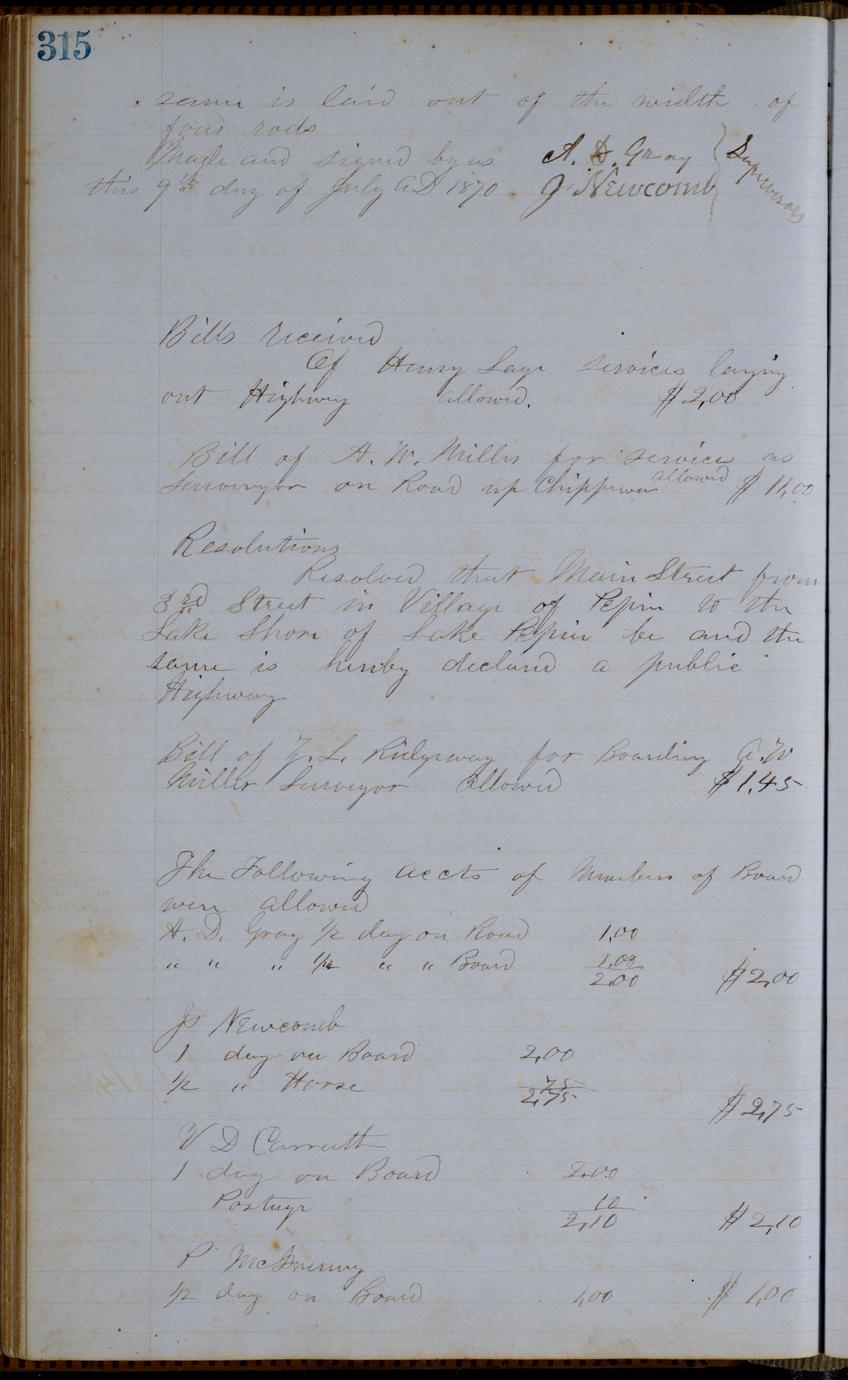 315
same is laid out of the width of
four rods
Made and signed by us A. D. Gray
this 9th day of July AD 1870 J Newcomb
Supervisors
Bills received
Of Henry Sage services laying
out Highway allowed. $2,00
Bill of A. W. Miller for services as
Surveyor on Road up Chippewa allowed $11,00
Resolutions
Resolved that Main Street from
3rd Street in Village of Pepin to the
Lake Shore of Lake Pepin be and the
same is hereby declared a public
Highway
Bill of L. Ridgeway for Boarding A. W
Miller Surveyor Allowed $1,45
The Following accts of Members of Board
were allowed
A. D. Gray 1/2 day on Road 1,00
" " " 1/2 " " Board 1,00
2,00 $2,00
J Newcomb
1 day on Board 2,00
1/2 " Horse 75
2,75 $2,75
V D Carruth
1 day on Board 2,00
Postage 10
2,10 $2,10
P
1/2 day on Board 1,00 $1,00